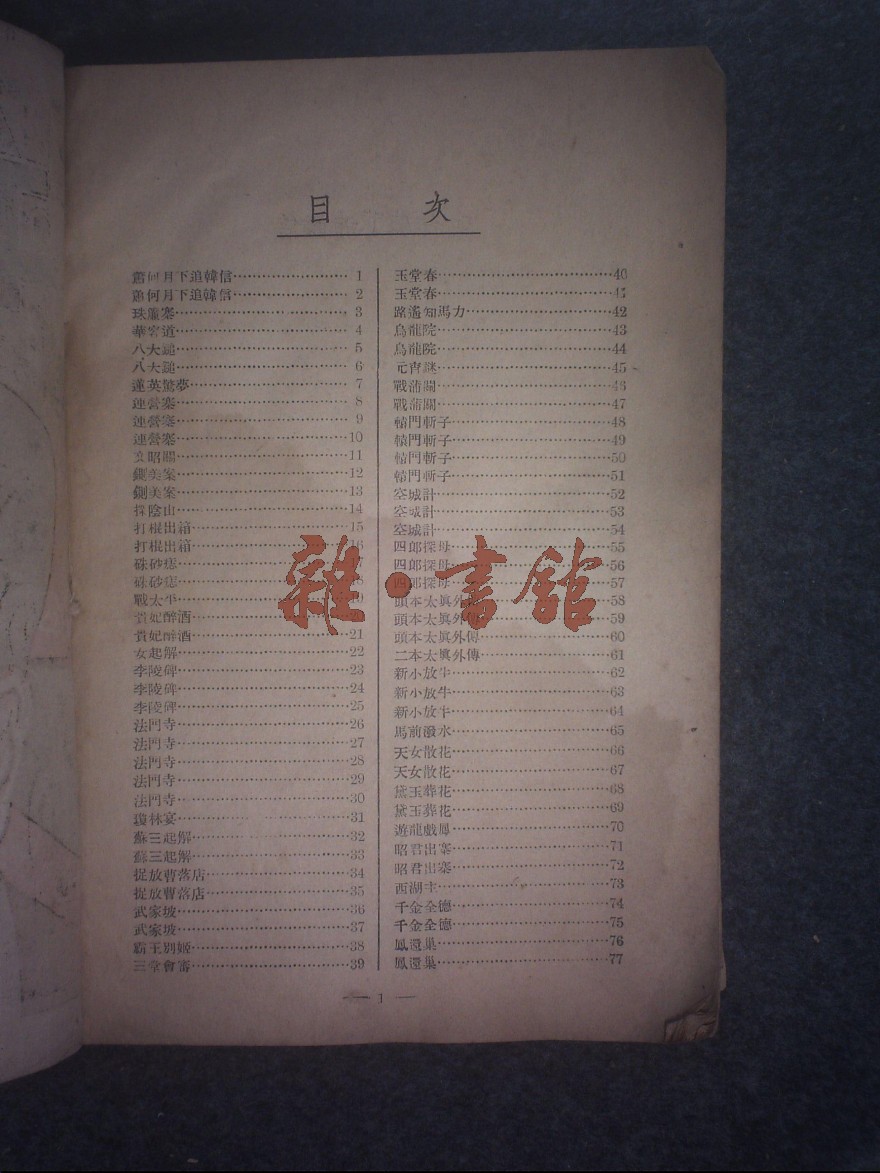 目 次
蕭何月下追韓信 1
蕭何月下追韓信 2
珠簾寨 3
華容道 4
八大鎚 5
八大鎚 6
蓮英驚夢 7
連營寨 8
連營寨 9
連營寨 10
文昭關 11
鍘美案 12
鍘美案 13
探陰山 14
打棍出箱 15
打棍出箱 16
硃砂痣
硃砂痣 18
戰太平 19
貴妃醉酒
貴妃醉酒 21
女起解 22
李陵碑 23
李陵碑 24
李陵碑 25
法門寺 26
法門寺 27
法門寺 28
法門寺 29
法門寺 30
瓊林宴 31
蘇三起解 32
蘇三起解 33
捉放曹落店 34
捉放曹落店 35
武家坡 36
武家坡 37
霸王別姬 38
三堂會審 39
玉堂春 40
玉堂春 41
路遙知馬力 42
烏龍院 43
烏龍院 44
元宵謎 45
戰蒲關 46
戰蒲關 47
轅門斬子 48
轅門斬子 49
轅門斬子 50
轅門斬子 51
空城計 52
空城計 53
空城計 54
四郎探母 55
四郎探母 56
四郎探母 57
頭本太真外 58
頭本太真外傳 59
頭本太真外傳 60
二本太真外傳 61
新小放牛 62
新小放牛 63
新小放牛 64
馬前潑水 65
天女散花 66
天女散花 67
黛玉葬花 68
黛玉葬花 69
遊龍戲鳳 70
昭君出寨 71
昭君出寨 72
西湖主 73
千金全德 74
千金全德 75
鳳還巢 76
鳳還巢 77
— 1 —
雜·書舘